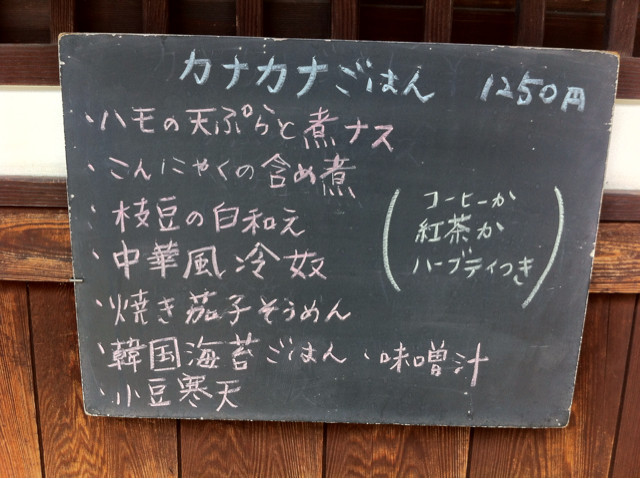 カナカナごはん 1250円
・ハモの天ぷらと煮ナス
・こんにゃくの含め煮
・枝豆の白和え
・中華風冷奴
・焼き茄子そうめん
・韓国海苔ごはん・味噌汁
・小豆寒天
(コーヒーか
紅茶か
ハーブティつき)